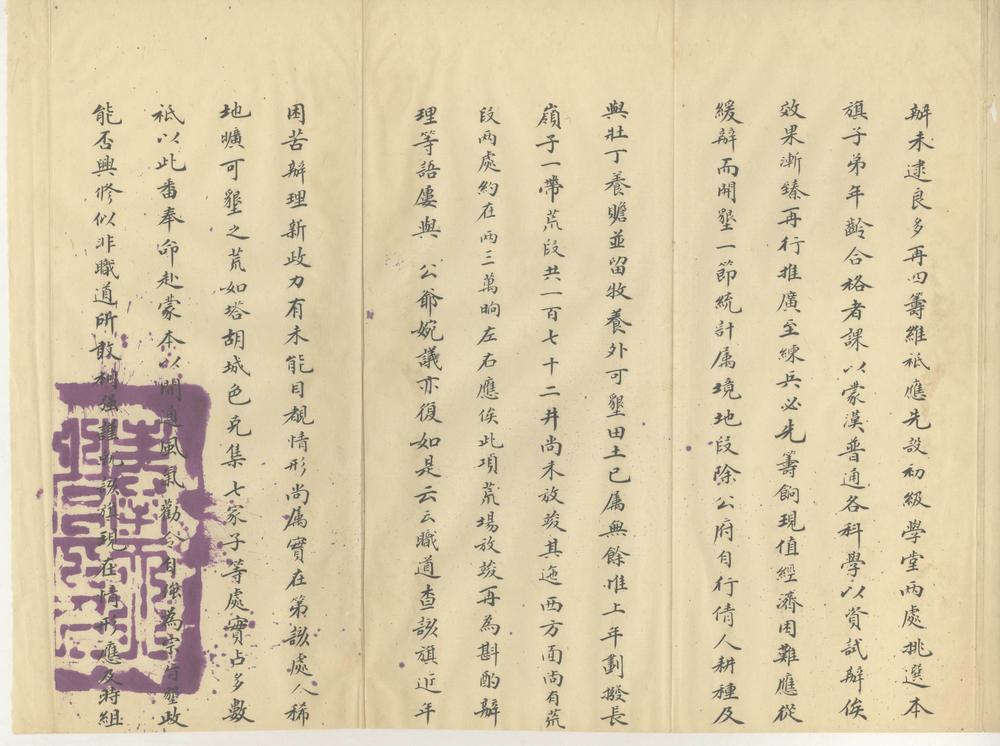 辦未逮良多再四籌維祗應先設初級學堂兩處挑選本
旗子弟年齡合格者課以蒙漢普通各科學以資試辦俟
效果漸臻再行推廣至練兵必先籌餉現值經濟困難應從
緩辦而開墾一節統計属境地段除公府自行倩人耕種及
與壯丁養贍並留牧養外可墾田土已属無餘惟上年劃撥長
嶺子一帶荒段共一百七十二井尚未放竣其迤西方面尚有荒
段兩處約在兩三萬晌左右應俟此項荒場放竣再為斟酌辦
理等語屢與 公爺婉議亦復如是云云職道查該旗近年
困苦辦理新政力有未能目覩情形尚属實在第該處人稀
地曠可墾之荒如塔胡城色克集七家子等處實占多數
祗以此番奉命赴蒙本以開通風氣勸令自強為宗旨墾政
能否興修似非職道所敢相強謹就該旗現在情形應及時組